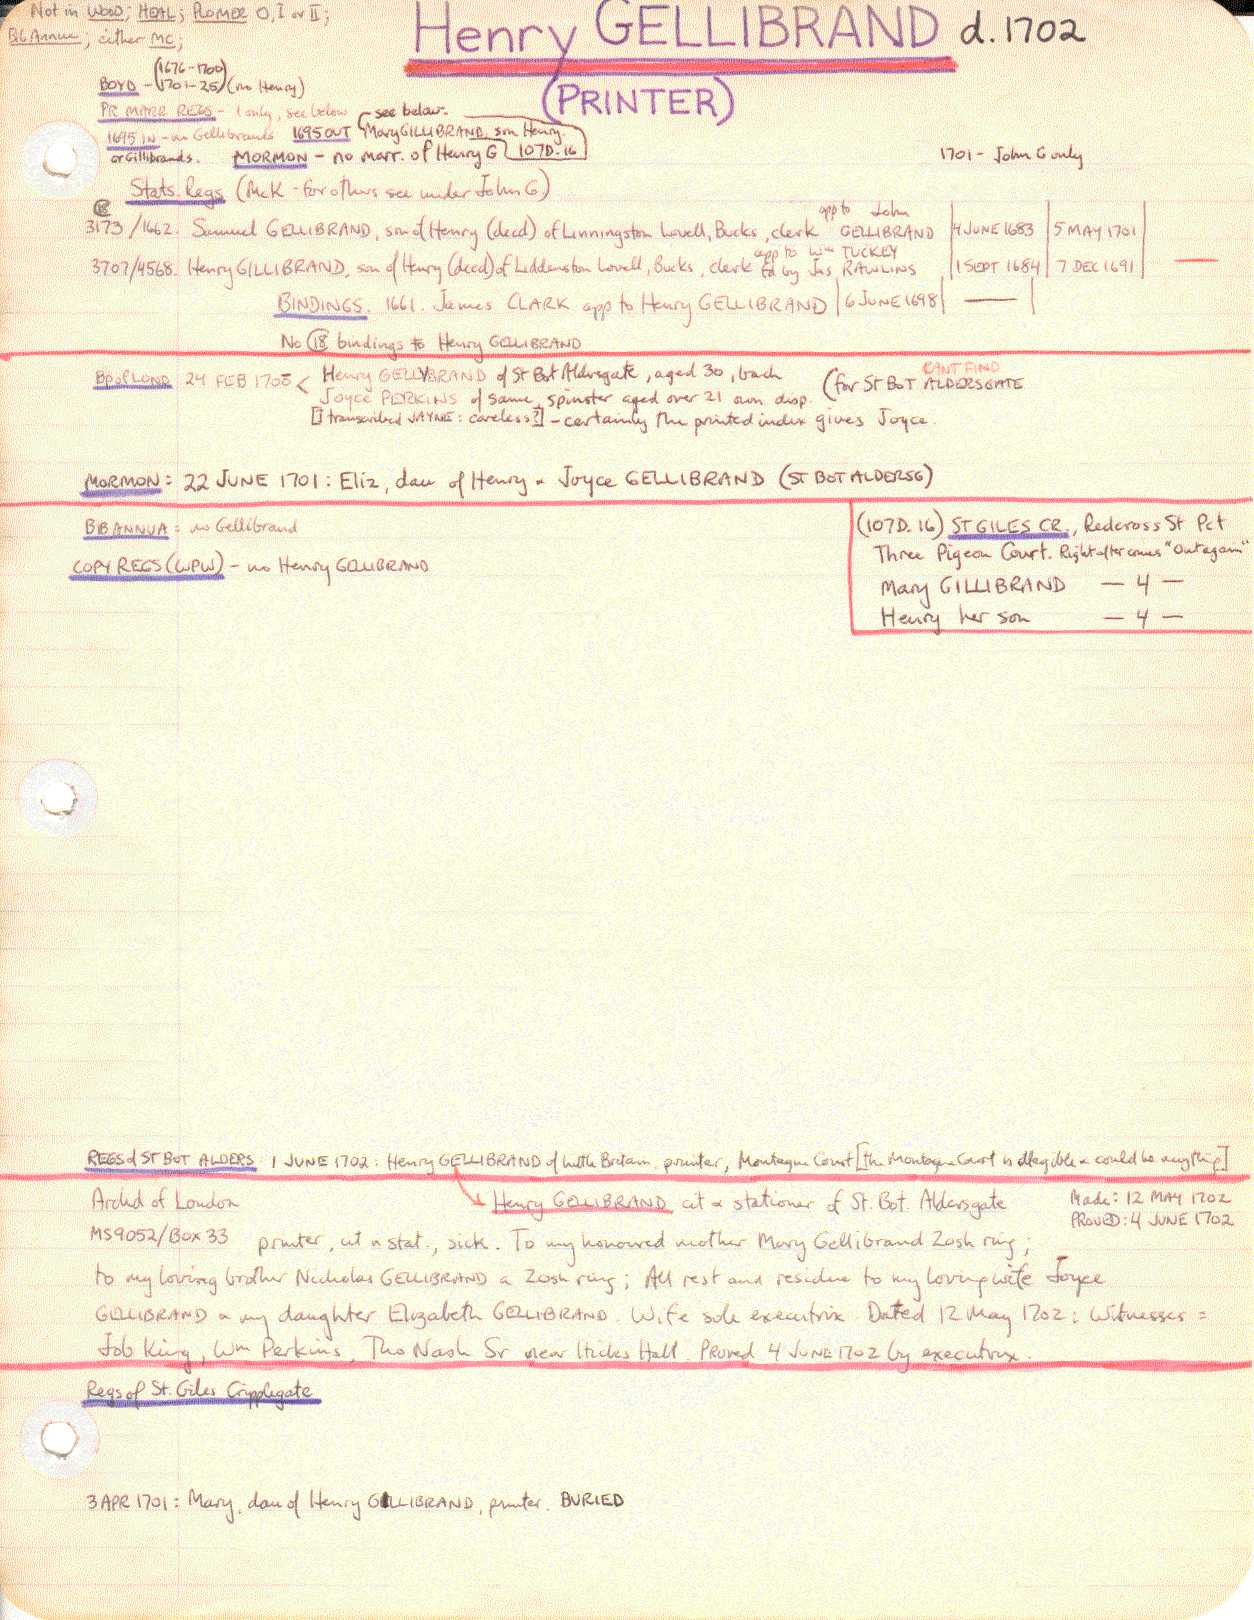 Not in WOOD; HEAL; PLOMER O, I or II;
Bib Annua; either MC;
Henry GELLIBRAND d.1702
(PRINTER)
BOYD - (1676-1700) (1701-25) (no Henry)
PR MARR REGS - 1 only, see below
see below.
1695 IN - no Gellibrands 1695 OUT Mary GILLIBRAND, son Henry.
or Gillibrands. MORMON - no marr. of Henry G 107D.16
1701 - John G only
Stats. Regs (McK - for others see under John G)
3173/1662. Samuel GELLIBRAND, son of Henry (decd) of Linningston Lovell, Bucks, clerk app to John GELLIBRAND | 4 JUNE 1683 | 5 MAY 1701 |
3707/4568. Henry GILLIBRAND, son of Henry (decd) of Liddenston Lovell, Bucks, clerk app to Wm TUCKEY fd by Jas RAWLINS | 1 SEPT 1684 | 7 DEC 1691 | —
BINDINGS. 1661. James CLARK app to Henry GELLIBRAND | 6 JUNE 1698 | — |
No 18 bindings to Henry GELLIBRAND
Bp of LOND 24 FEB 1705 < Henry GELLYBRAND of St Bot Aldersgate, aged 30, bach
Joyce PERKINS of same, spinster aged over 21 own disp. (for St BOT ALDERSGATE
CANT FIND
[J transcribed JAYNE: careless?] - certainly the printed index gives Joyce.
MORMON: 22 JUNE 1701: Eliz, dau of Henry & Joyce GELLIBRAND (ST BOT ALDERSG)
BIB ANNUA: no Gellibrand
COPY REGS (WPW) - no Henry GELLIBRAND
(107D.16) ST GILES CR., Redcross St Pct
Three Pigeon Court. Right after comes "Out again"
Mary GILLIBRAND — 4 —
Henry her son — 4 —
REGS of ST BOT ALDERS: 1 JUNE 1702: Henry GELLIBRAND of little Britain, printer, Montague Court [the Montague Court is illegible & could be anything]
Archd of London Henry GELLIBRAND cit & stationer of St. Bot. Aldersgate Made: 12 MAY 1702
PROVED: 4 JUNE 1702
MS9052/Box 33 printer, cit & stat., sick. To my honoured mother Mary Gellibrand 20sh ring;
to my loving brother Nicholas GELLIBRAND a 20sh ring; All rest and residue to my loving wife Joyce
GELLIBRAND & my daughter Elizabeth GELLIBRAND. Wife sole executrix. Dated 12 May 1702: Witnesses =
Job King, Wm Perkins, Tho Nash Sr near Hicks Hall. Proved 4 JUNE 1702 by executrix.
Regs of St. Giles Cripplegate
3 APR 1701: Mary, dau of Henry GILLIBRAND, printer. BURIED